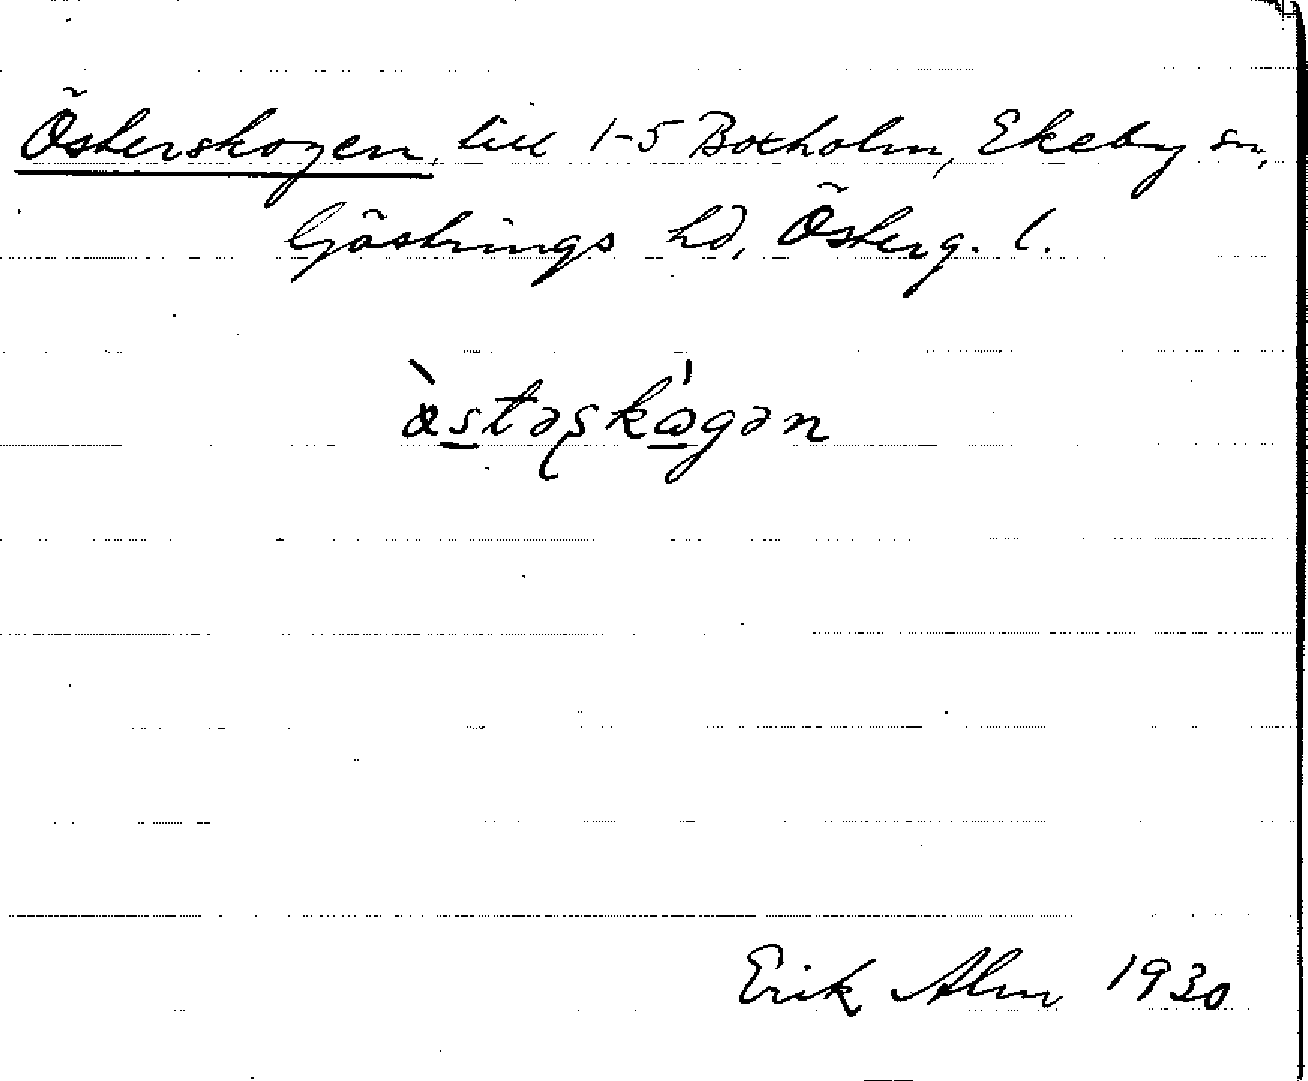 Österskogen, till 1-5 Boxholm, Ekeby sn,
Göstrings hd, Österg. l.
ɑ̀stəʂkɷ́gən
Erik Alm 1930